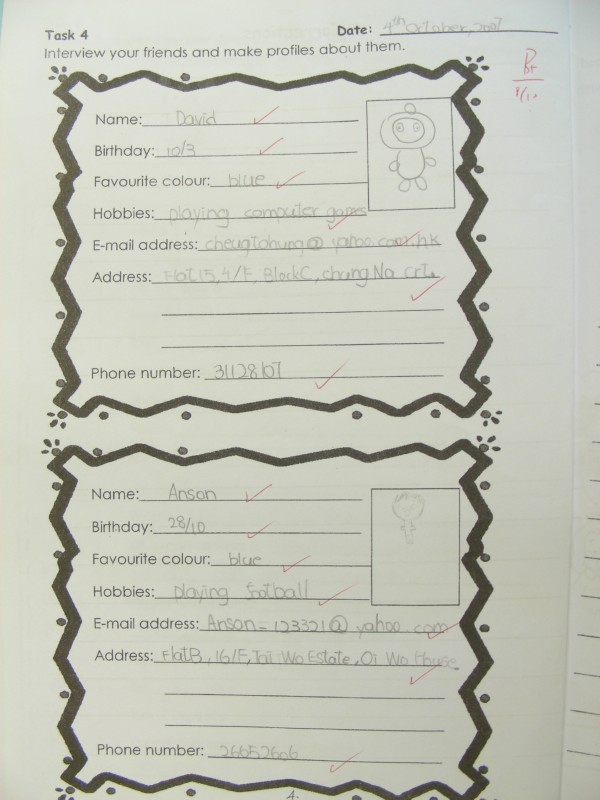 Task 4
Date: 4th October, 2007
Interview your friends and make profiles about them.
B+
Name: David
Birthday: 10/3
Favourite colour: blue
Hobbies: playing computer games
E-mail address: @ yahoo.com.hk
Address: Flat 15, 4/F, Block C, Chung Na Crt.
Phone number:
Name: Anson
Birthday: 28/10
Favourite colour: blue
Hobbies: playing football
E-mail address: Anson_123321@ yahoo.com
Address: Flat B, 16/F, Tai Wo Estate, Oi Wo House
Phone number: 26652606
4